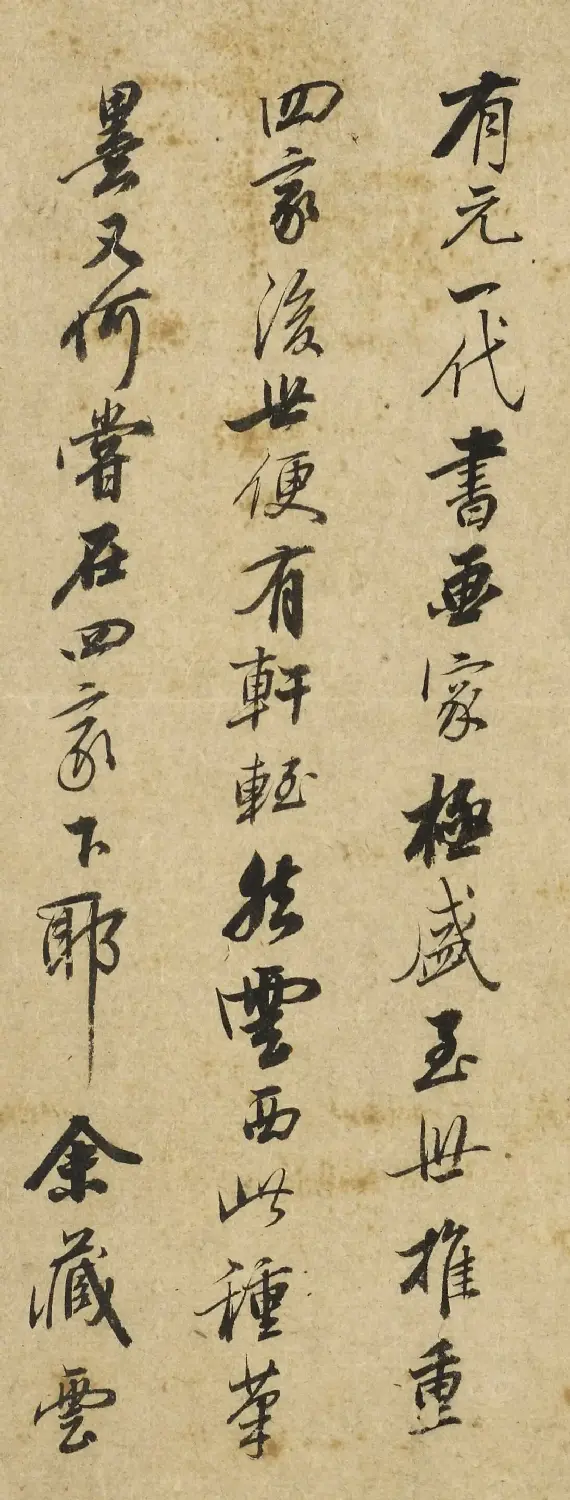 有元一代書画家極盛至世推重
四家後世便有軒輊然雲西此種筆
墨又何嘗在四家下耶余藏雲